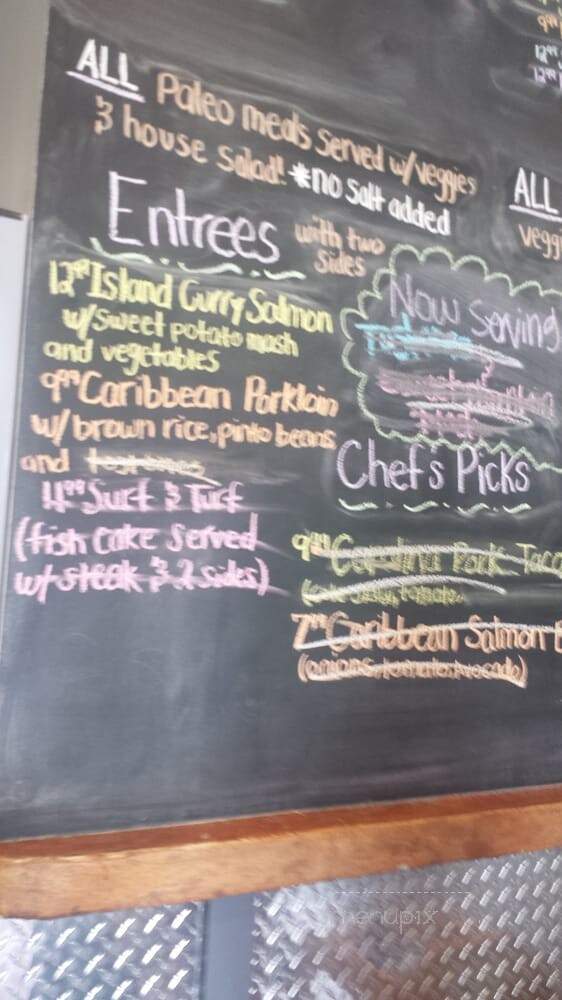 ALL Paleo meals Served w/veggies
& house Salad! *no Salt added
Entrees with two
Sides
12⁹⁹ Island Curry Salmon
w/sweet potato mash
and vegetables
9⁹⁹ Caribbean Porkloin
w/brown rice, pinto beans
and
11⁹⁹ Surf & Turf
(fish cake served
w/ steak & 2 sides)
ALL
veggi
Now Serving
Chef's Picks
9⁹⁹ Carolina Pork Taco
7⁹⁹ Caribbean Salmon B
(onions, tomato, avocado)
menupix